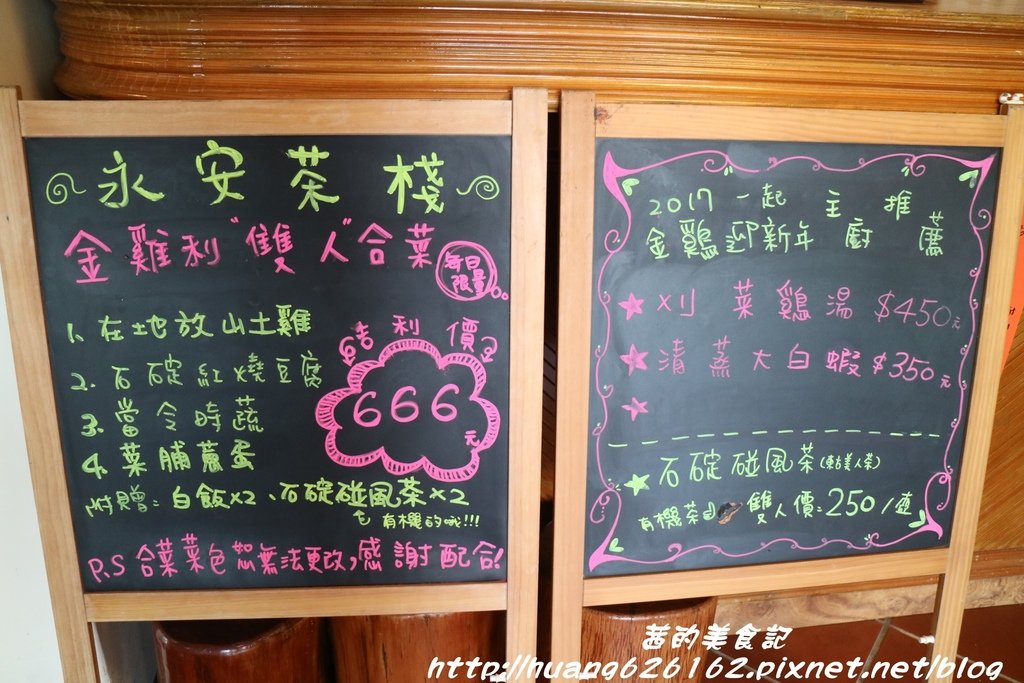 永安茶棧
金雞利"雙人"合菜
每日限量
1. 在地放山土雞
2. 石碇紅燒豆腐
3. 當令時蔬
4. 菜脯蔥蛋
吉利價
666元
附贈:白飯x2、石碇碰風茶x2
有機的呦!!!
P.S 合菜菜色恕無法更改,感謝配合!
2017一起 主推
金鷄迎新年 廚薦
刈菜鷄湯 $450元
清蒸大白蝦 $350元
石碇碰風茶(東方美人茶)
有機茶 雙人價:250/壺
茜的美食記
http://huang626162.pixnet.net/blog